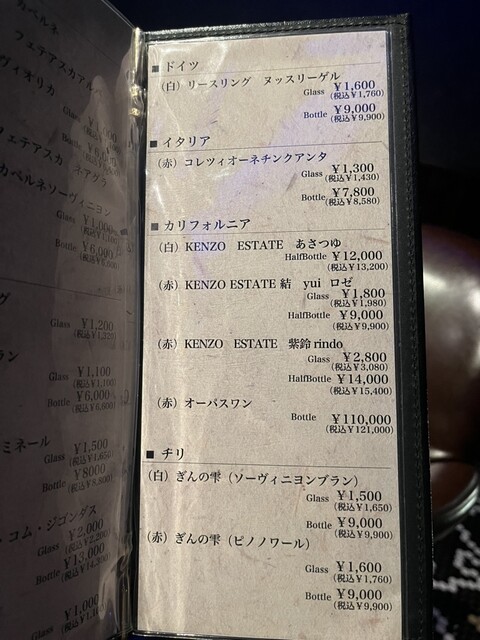 カベルネ
フェテアスカアルバ
ヴィオリカ
フェテアスカ ネアグラ
カベルネソーヴィニヨン
Glass ¥1,000
Bottle ¥6,000
Glass ¥1,200
(税込¥1,320)
Glass ¥1,100
Bottle ¥6,000
(税込¥6,600)
ミネール
Glass ¥1,500
(税込¥1,650)
Bottle ¥8000
(税込¥8,800)
コム・ジゴンダス
Glass ¥2,000
(税込¥2,200)
Bottle ¥13,000
(税込¥14,300)
¥1,000
■ ドイツ
(白) リースリング ヌッスリーゲル
Glass ¥1,600
(税込¥1,760)
Bottle ¥9,000
(税込¥9,900)
■ イタリア
(赤) コレツィオーネチンクアンタ
Glass ¥1,300
(税込¥1,430)
Bottle ¥7,800
(税込¥8,580)
■ カリフォルニア
(白) KENZO ESTATE あさつゆ
HalfBottle ¥12,000
(税込¥13,200)
(赤) KENZO ESTATE 結 yui ロゼ
Glass ¥1,800
(税込¥1,980)
HalfBottle ¥9,000
(税込¥9,900)
(赤) KENZO ESTATE 紫鈴 rindo
Glass ¥2,800
(税込¥3,080)
HalfBottle ¥14,000
(税込¥15,400)
(赤) オーパスワン
Bottle ¥110,000
(税込¥121,000)
■ チリ
(白) ぎんの雫 (ソーヴィニヨンブラン)
Glass ¥1,500
(税込¥1,650)
Bottle ¥9,000
(税込¥9,900)
(赤) ぎんの雫 (ピノノワール)
Glass ¥1,600
(税込¥1,760)
Bottle ¥9,000
(税込¥9,900)